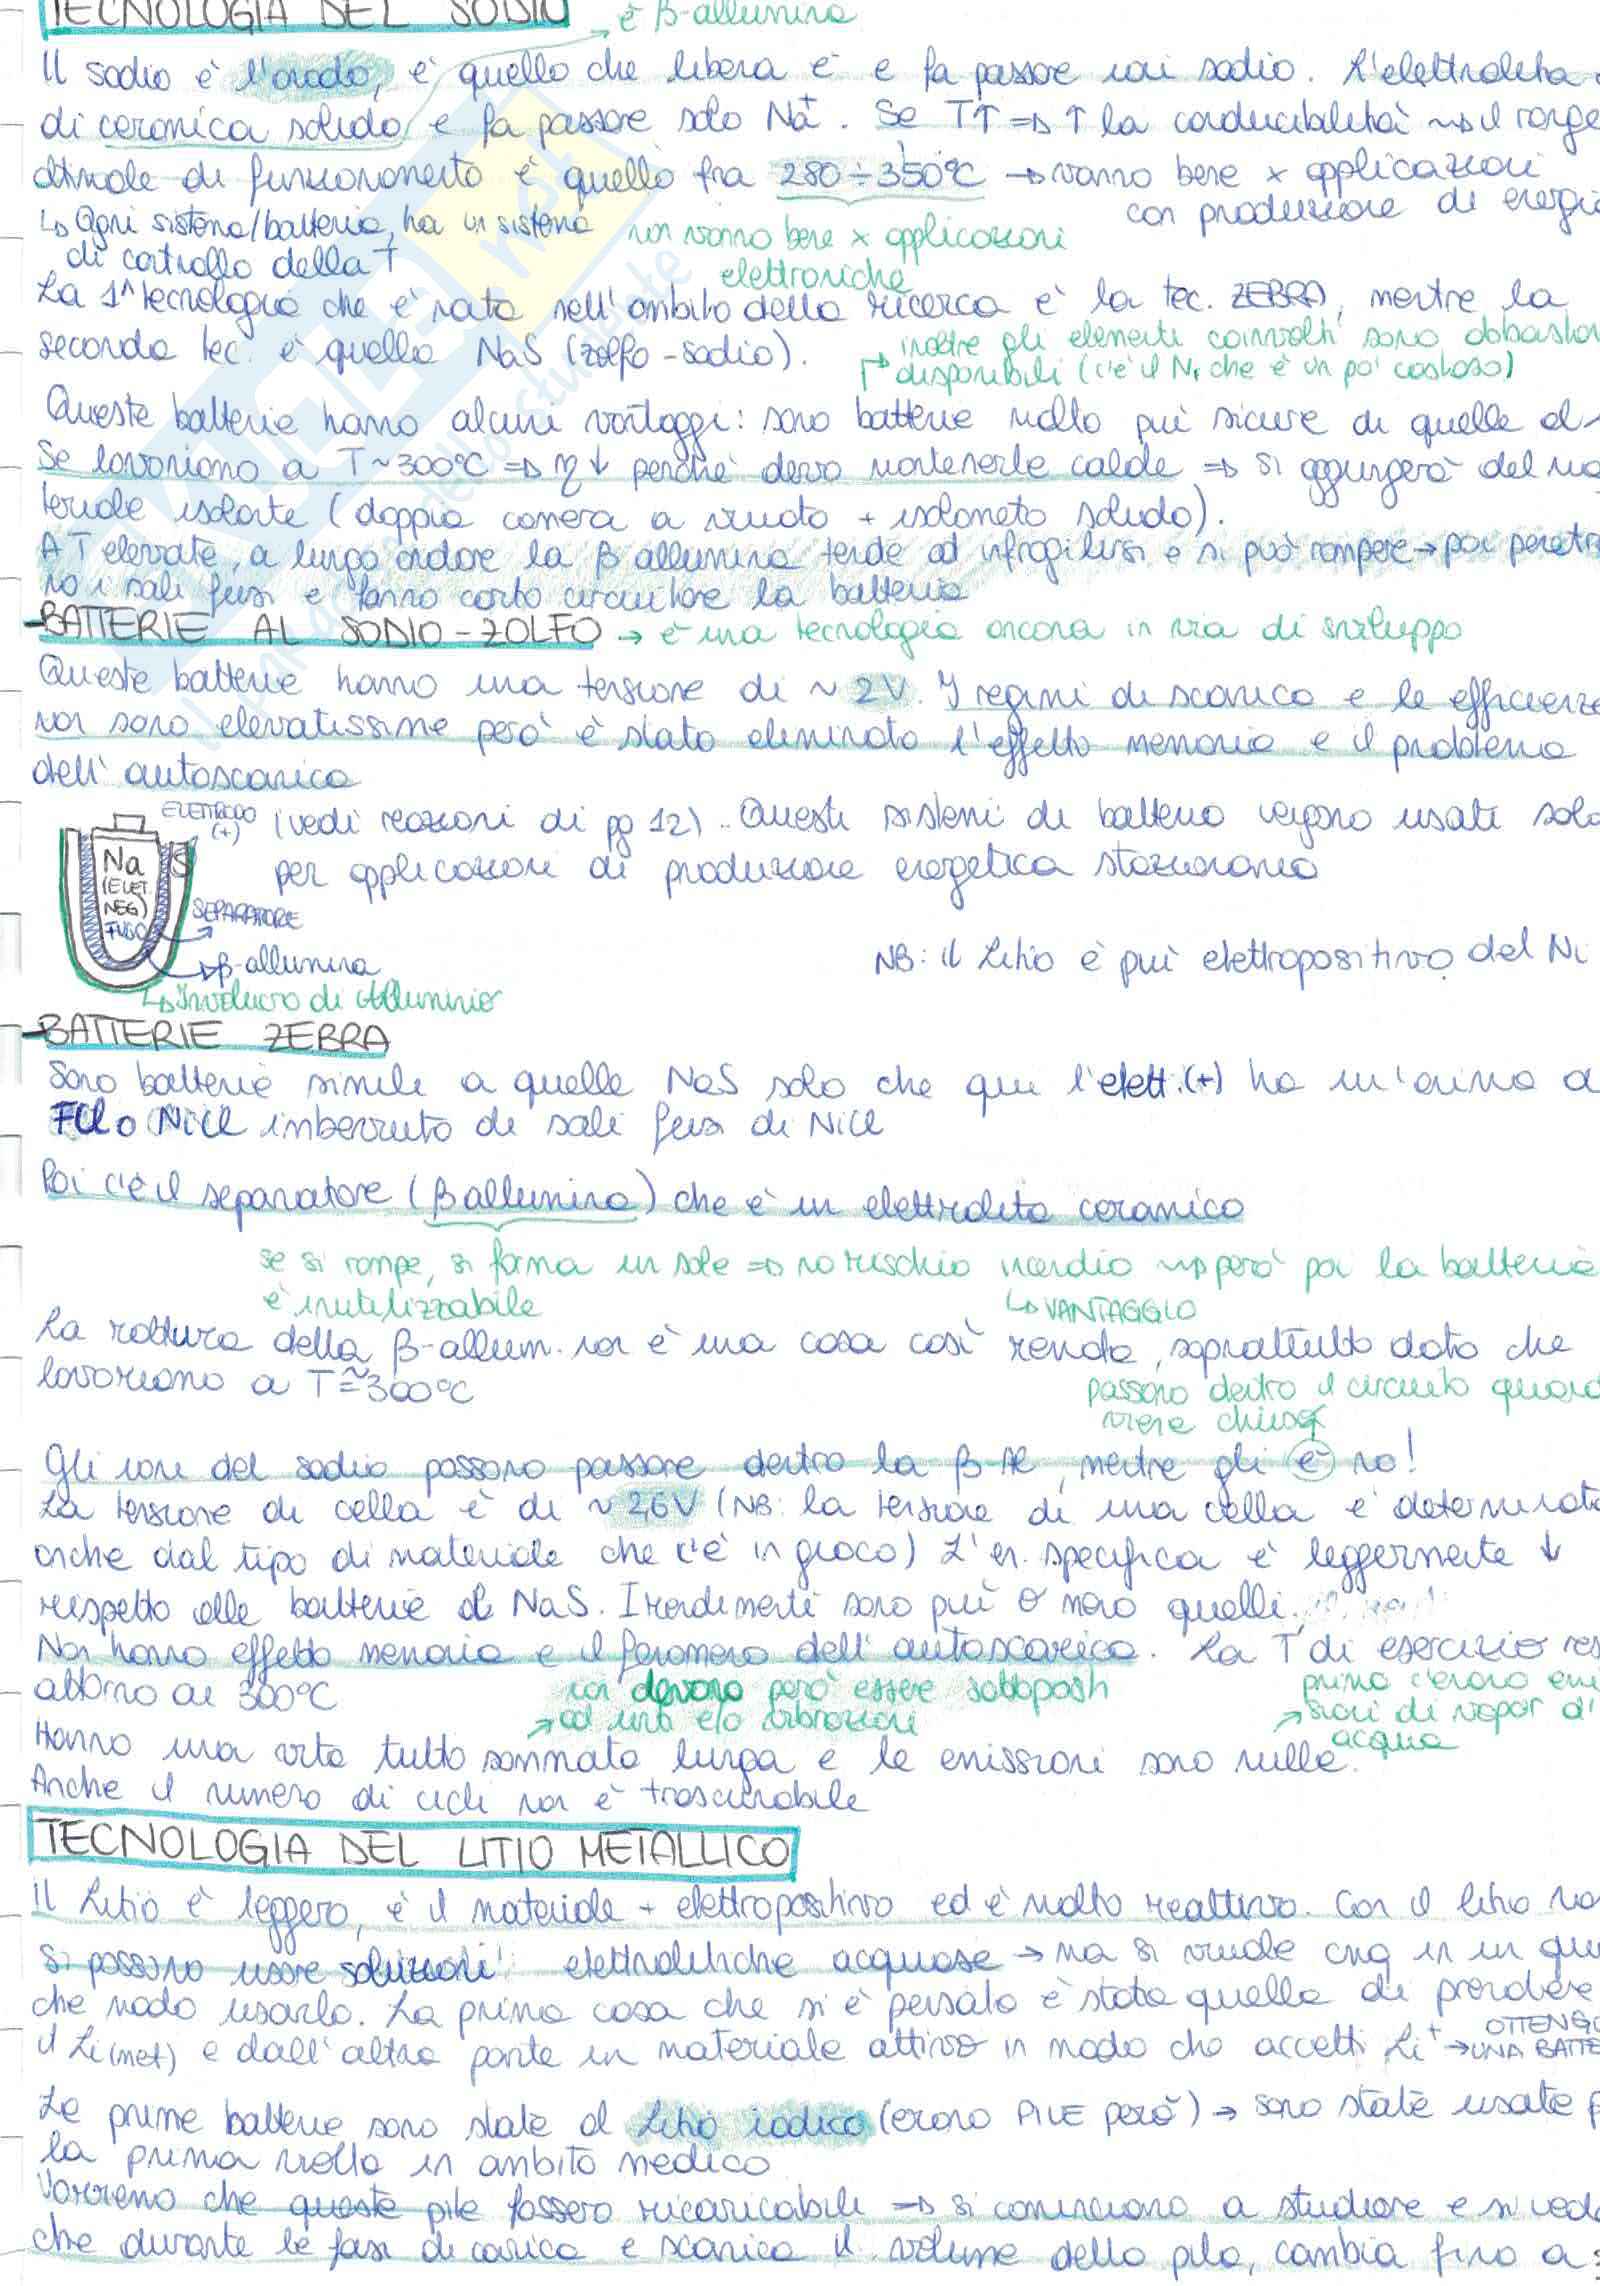 TECNOLOGIA DEL SODIO
è β-allumina
Il sodio è l'anodo, è quello che libera e⁻ e fa passare ioni sodio. L'elettrolita
di ceramica solido e fa passare solo Na⁺. Se T↑ ⇒ ↑ la conducibilità ⇝ il range
ottimale di funzionamento è quello fra 280÷350°C → vanno bene x applicazioni
con produzione di energia
↳ Ogni sistema/batteria, ha un sistema
non vanno bene x applicazioni
di controllo della T
elettroniche
La 1^ tecnologia che è nata nell'ambito della ricerca è la tec. ZEBRA, mentre la
seconda tec. è quella NaS (zolfo-sodio).
inoltre gli elementi coinvolti sono abbastan
disponibili (c'è il Ni che è un po' costoso)
Queste batterie hanno alcuni vantaggi: sono batterie molto più sicure di quelle al
Se lavoriamo a T~300°C ⇒ η↓ perchè devo mantenerle calde ⇒ si aggiungerà del ma
teriale isolante (doppia camera a vuoto + isolamento solido).
A T elevate, a lungo andare la β allumina tende ad infragilirsi e si può rompere → poi penetra
no i sali fusi e fanno corto circuitare la batteria
-BATTERIE AL SODIO-ZOLFO → è una tecnologia ancora in via di sviluppo
Queste batterie hanno una tensione di ~ 2V. I regimi di scarica e le efficienze
non sono elevatissime però è stato eliminato l'effetto memoria e il problema
dell'autoscarica
ELETTRODO
(+)
(vedi reazioni di pg 12). Questi sistemi di batteria vengono usati solo
per applicazioni di produzione energetica stazionaria
Na
(ELET.
NEG)
FUSO
S
SEPARATORE
β-allumina
NB: il Litio è più elettropositivo del Ni
↳ Involucro di Alluminio
-BATTERIE ZEBRA
Sono batterie simile a quelle NaS solo che qui l'elett.(+) ha un'anima a
FCl o NiCl imbevuto di sali fusi di NiCl
Poi c'è il separatore (β allumina) che è un elettrolita ceramico
se si rompe, si forma un sale ⇒ no rischio incendio ⇝ però poi la batteria
è inutilizzabile
↳ VANTAGGIO
La rottura della β-allum. non è una cosa così remota, soprattutto dato che
lavoriamo a T≅300°C
passano dentro il circuito quand
viene chiuso
Gli ioni del sodio possono passare dentro la β-Al, mentre gli e⁻ no!
La tensione di cella è di ~ 2,6V (NB: la tensione di una cella è determinata
anche dal tipo di materiale che c'è in gioco) L'en. specifica è leggermente ↓
rispetto alle batterie di NaS. I rendimenti sono più o meno quelli.
Non hanno effetto memoria e il fenomeno dell'autoscarica. La T di esercizio res
attorno ai 300°C
non devono però essere sottoposti
→ ad urti e/o vibrazioni
prima c'erano emis
sioni di vapor d'
acqua
Hanno una vita tutto sommato lunga e le emissioni sono nulle.
Anche il numero di cicli non è trascurabile
TECNOLOGIA DEL LITIO METALLICO
Il Litio è leggero, è il materiale + elettropositivo ed è molto reattivo. Con il litio no
si possono usare soluzioni elettrolitiche acquose → ma si vuole cmq in un qua
che modo usarlo. La prima cosa che si è pensato è stata quella di prendere
il Li(met) e dall'altra parte un materiale attivo in modo che accetti Li⁺ →
OTTENGO
UNA BATTE
Le prime batterie sono state al litio iodico (erano PILE però) → sono state usate p
la prima volta in ambito medico
Vorremo che queste pile fossero ricaricabili ⇒ si cominciano a studiare e si vede
che durante le fasi di carica e scarica il volume della pila, cambia fino a